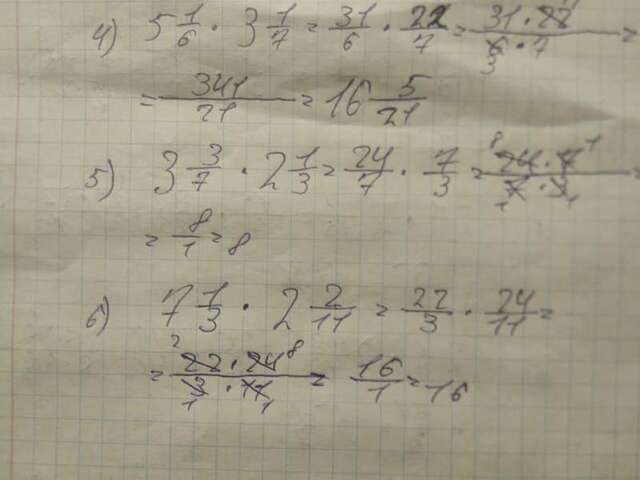 4) 5 1/6 · 3 1/7 = 31/6 · 22/7 = 31 · 22 11/6 3 · 7 =
= 341/21 = 16 5/21
5) 3 3/7 · 2 1/3 = 24/7 · 7/3 = 8 24 · 7 1/7 1 · 3 1 =
= 8/1 = 8
6) 7 1/3 · 2 2/11 = 22/3 · 24/11 =
= 2 22 · 24 8/3 1 · 11 1 = 16/1 = 16